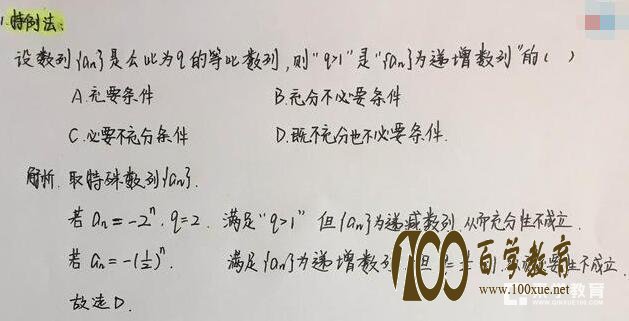 1.特例法:
设数列{an}是公比为q的等比数列,则"q>1"是"{an}为递增数列"的( )
A.充要条件 B.充分不必要条件
C.必要不充分条件 D.既不充分也不必要条件.
解析. 取特殊数列{an}.
若 an=-2ⁿ, q=2. 满足"q>1" 但{an}为递减数列.从而充分性不成立.
若 an=-(½)ⁿ. 满足{an}为递增数列 但 性不成立.
故选D.
100 百学教育
www.100xue.net